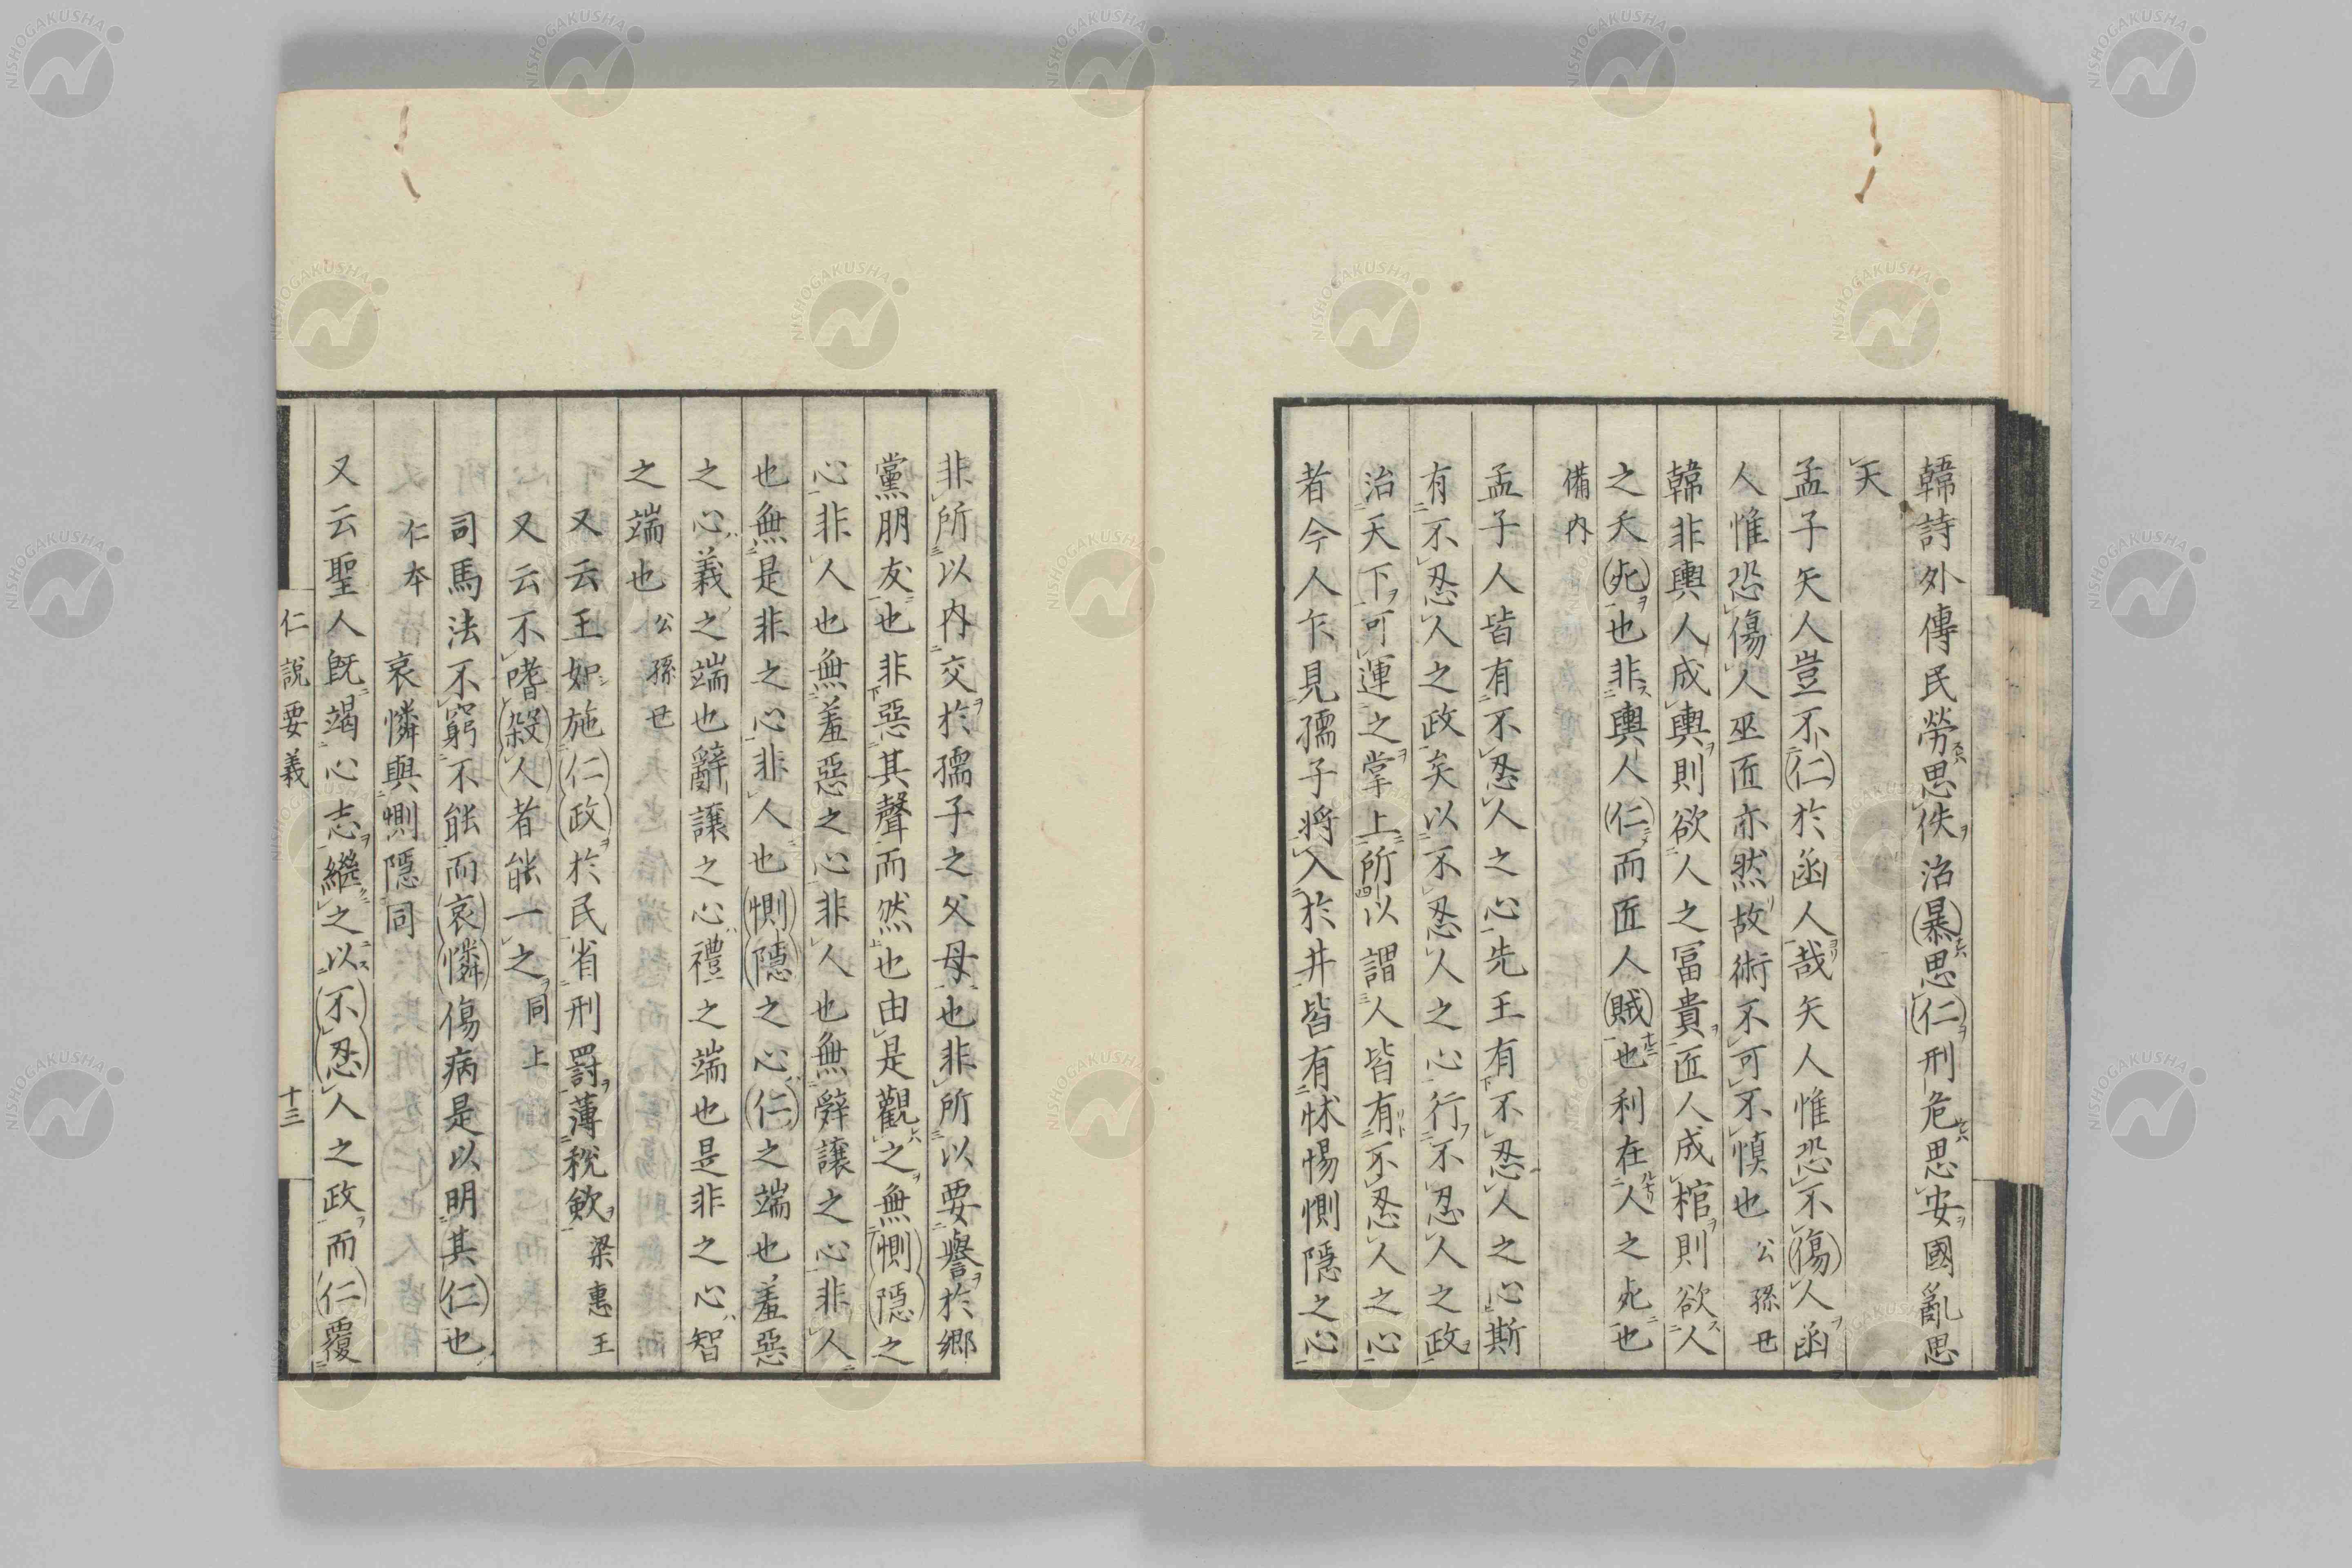 韓詩外傳民勞思佚治暴思仁刑危思安國亂思
天
孟子矢人豈不仁於函人哉矢人惟恐不傷人函
人惟恐傷人巫匠亦然故術不可不慎也 公孫丑
韓非輿人成輿則欲人之冨貴匠人成棺則欲人
之夭死也非輿人仁而匠人賊也利在人之死也
備内
孟子人皆有不忍人之心先王有不忍人之心斯
有不忍人之政矣以不忍人之心行不忍人之政
治天下可運之掌上所以謂人皆有不忍人之心
者今人乍見孺子将入於井皆有怵惕惻隠之心
非所以内交於孺子之父母也非所以要譽於鄉
黨朋友也非惡其聲而然也由是觀之無惻隠之
心非人也無羞惡之心非人也無辤讓之心非人
也無是非之心非人也惻隠之心仁之端也羞惡
之心義之端也辭讓之心禮之端也是非之心智
之端也 公孫丑
又云王如施仁政於民省刑罰薄稅斂 梁惠王
又云不嗜殺人者能一之 同上
司馬法不窮不能而哀憐傷病是以明其仁也
仁本 哀憐與惻隠同
又云聖人既竭心志繼之以不忍人之政而仁覆
仁說要義 十三
NISHOGAKUSHA